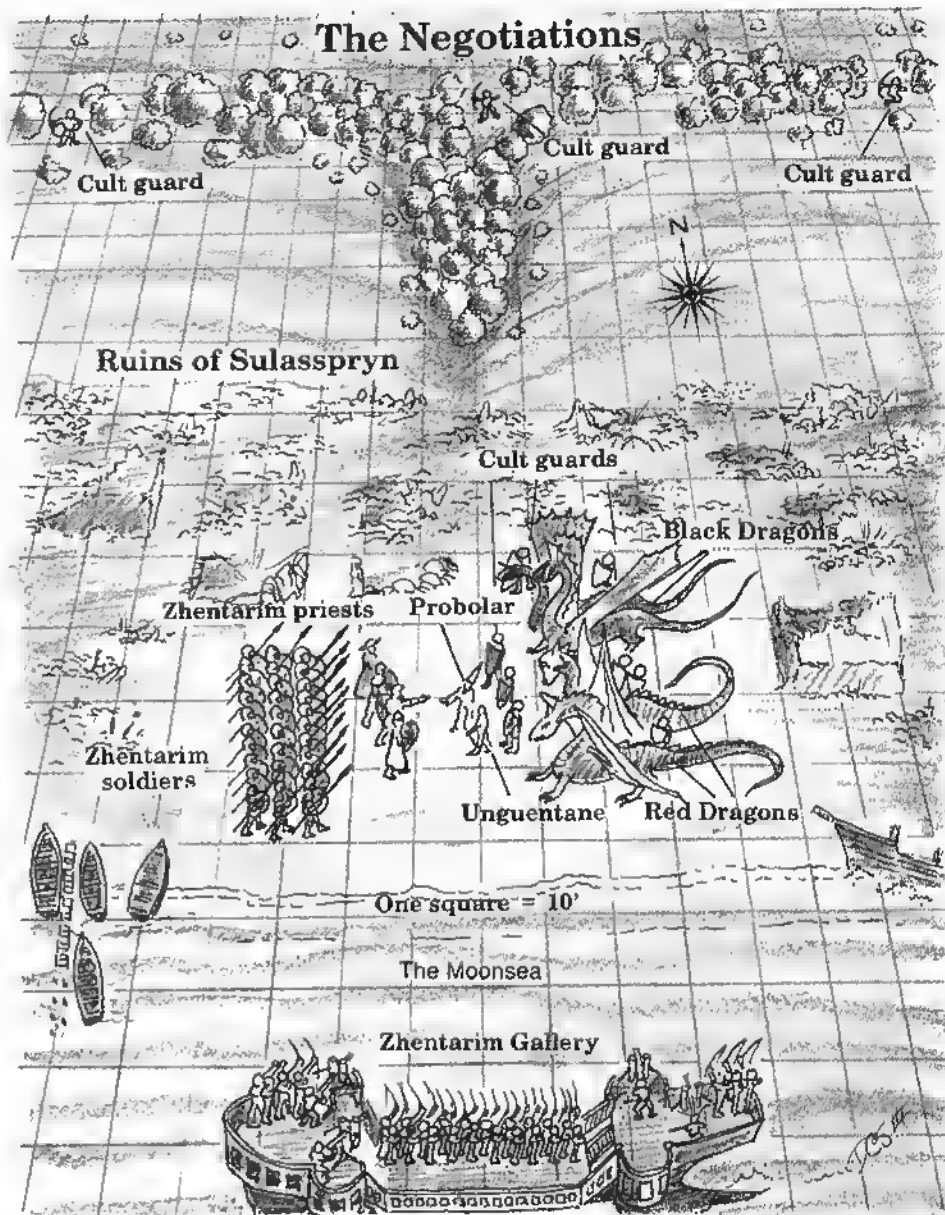 The Negotiations
Cult guard
Cult guard
Cult guard
N
Ruins of Sulasspryn
Cult guards
Black Dragons
Zhentarim priests
Probolar
Zhentarim
soldiers
Unguentane
Red Dragons
One square = 10'
The Moonsea
Zhentarim Gallery